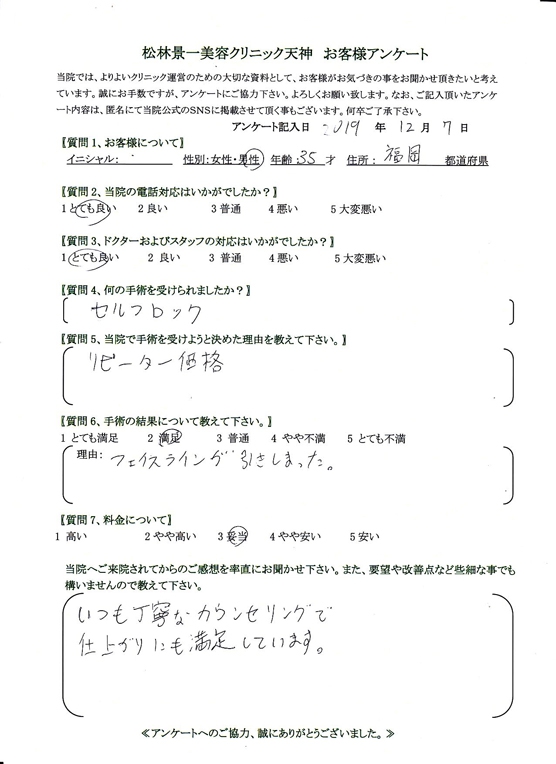 松林景一美容クリニック天神　お客様アンケート
当院では、よりよいクリニック運営のための大切な資料として、お客様がお気づきの事をお聞かせ頂きたいと考え
ています。誠にお手数ですが、アンケートにご協力下さい。よろしくお願い致します。なお、ご記入頂いたアンケ
ート内容は、匿名にて当院公式のSNSに掲載させて頂く事もございます。何卒ご了承下さい。
アンケート記入日　2019　年　12　月　7　日
【質問1、お客様について】
イニシャル：　性別：女性・男性　年齢：35　才　住所：　福岡　都道府県
【質問2、当院の電話対応はいかがでしたか？】
1とても良い　2 良い　3 普通　4 悪い　5 大変悪い
【質問3、ドクターおよびスタッフの対応はいかがでしたか？】
1 とても良い　2 良い　3 普通　4 悪い　5 大変悪い
【質問4、何の手術を受けられましたか？】
セルフロック
【質問5、当院で手術を受けようと決めた理由を教えて下さい。】
リピーター価格
【質問6、手術の結果について教えて下さい。】
1 とても満足　2 満足　3 普通　4 やや不満　5 とても不満
理由：フェイスライングが引きしまった。
【質問7、料金について】
1 高い　2 やや高い　3 妥当　4 やや安い　5 安い
当院へご来院されてからのご感想を率直にお聞かせ下さい。また、要望や改善点など些細な事でも
構いませんので教えて下さい。
いつも丁寧なカウンセリングで
仕上がりにも満足しています。
≪アンケートへのご協力、誠にありがとうございました。≫